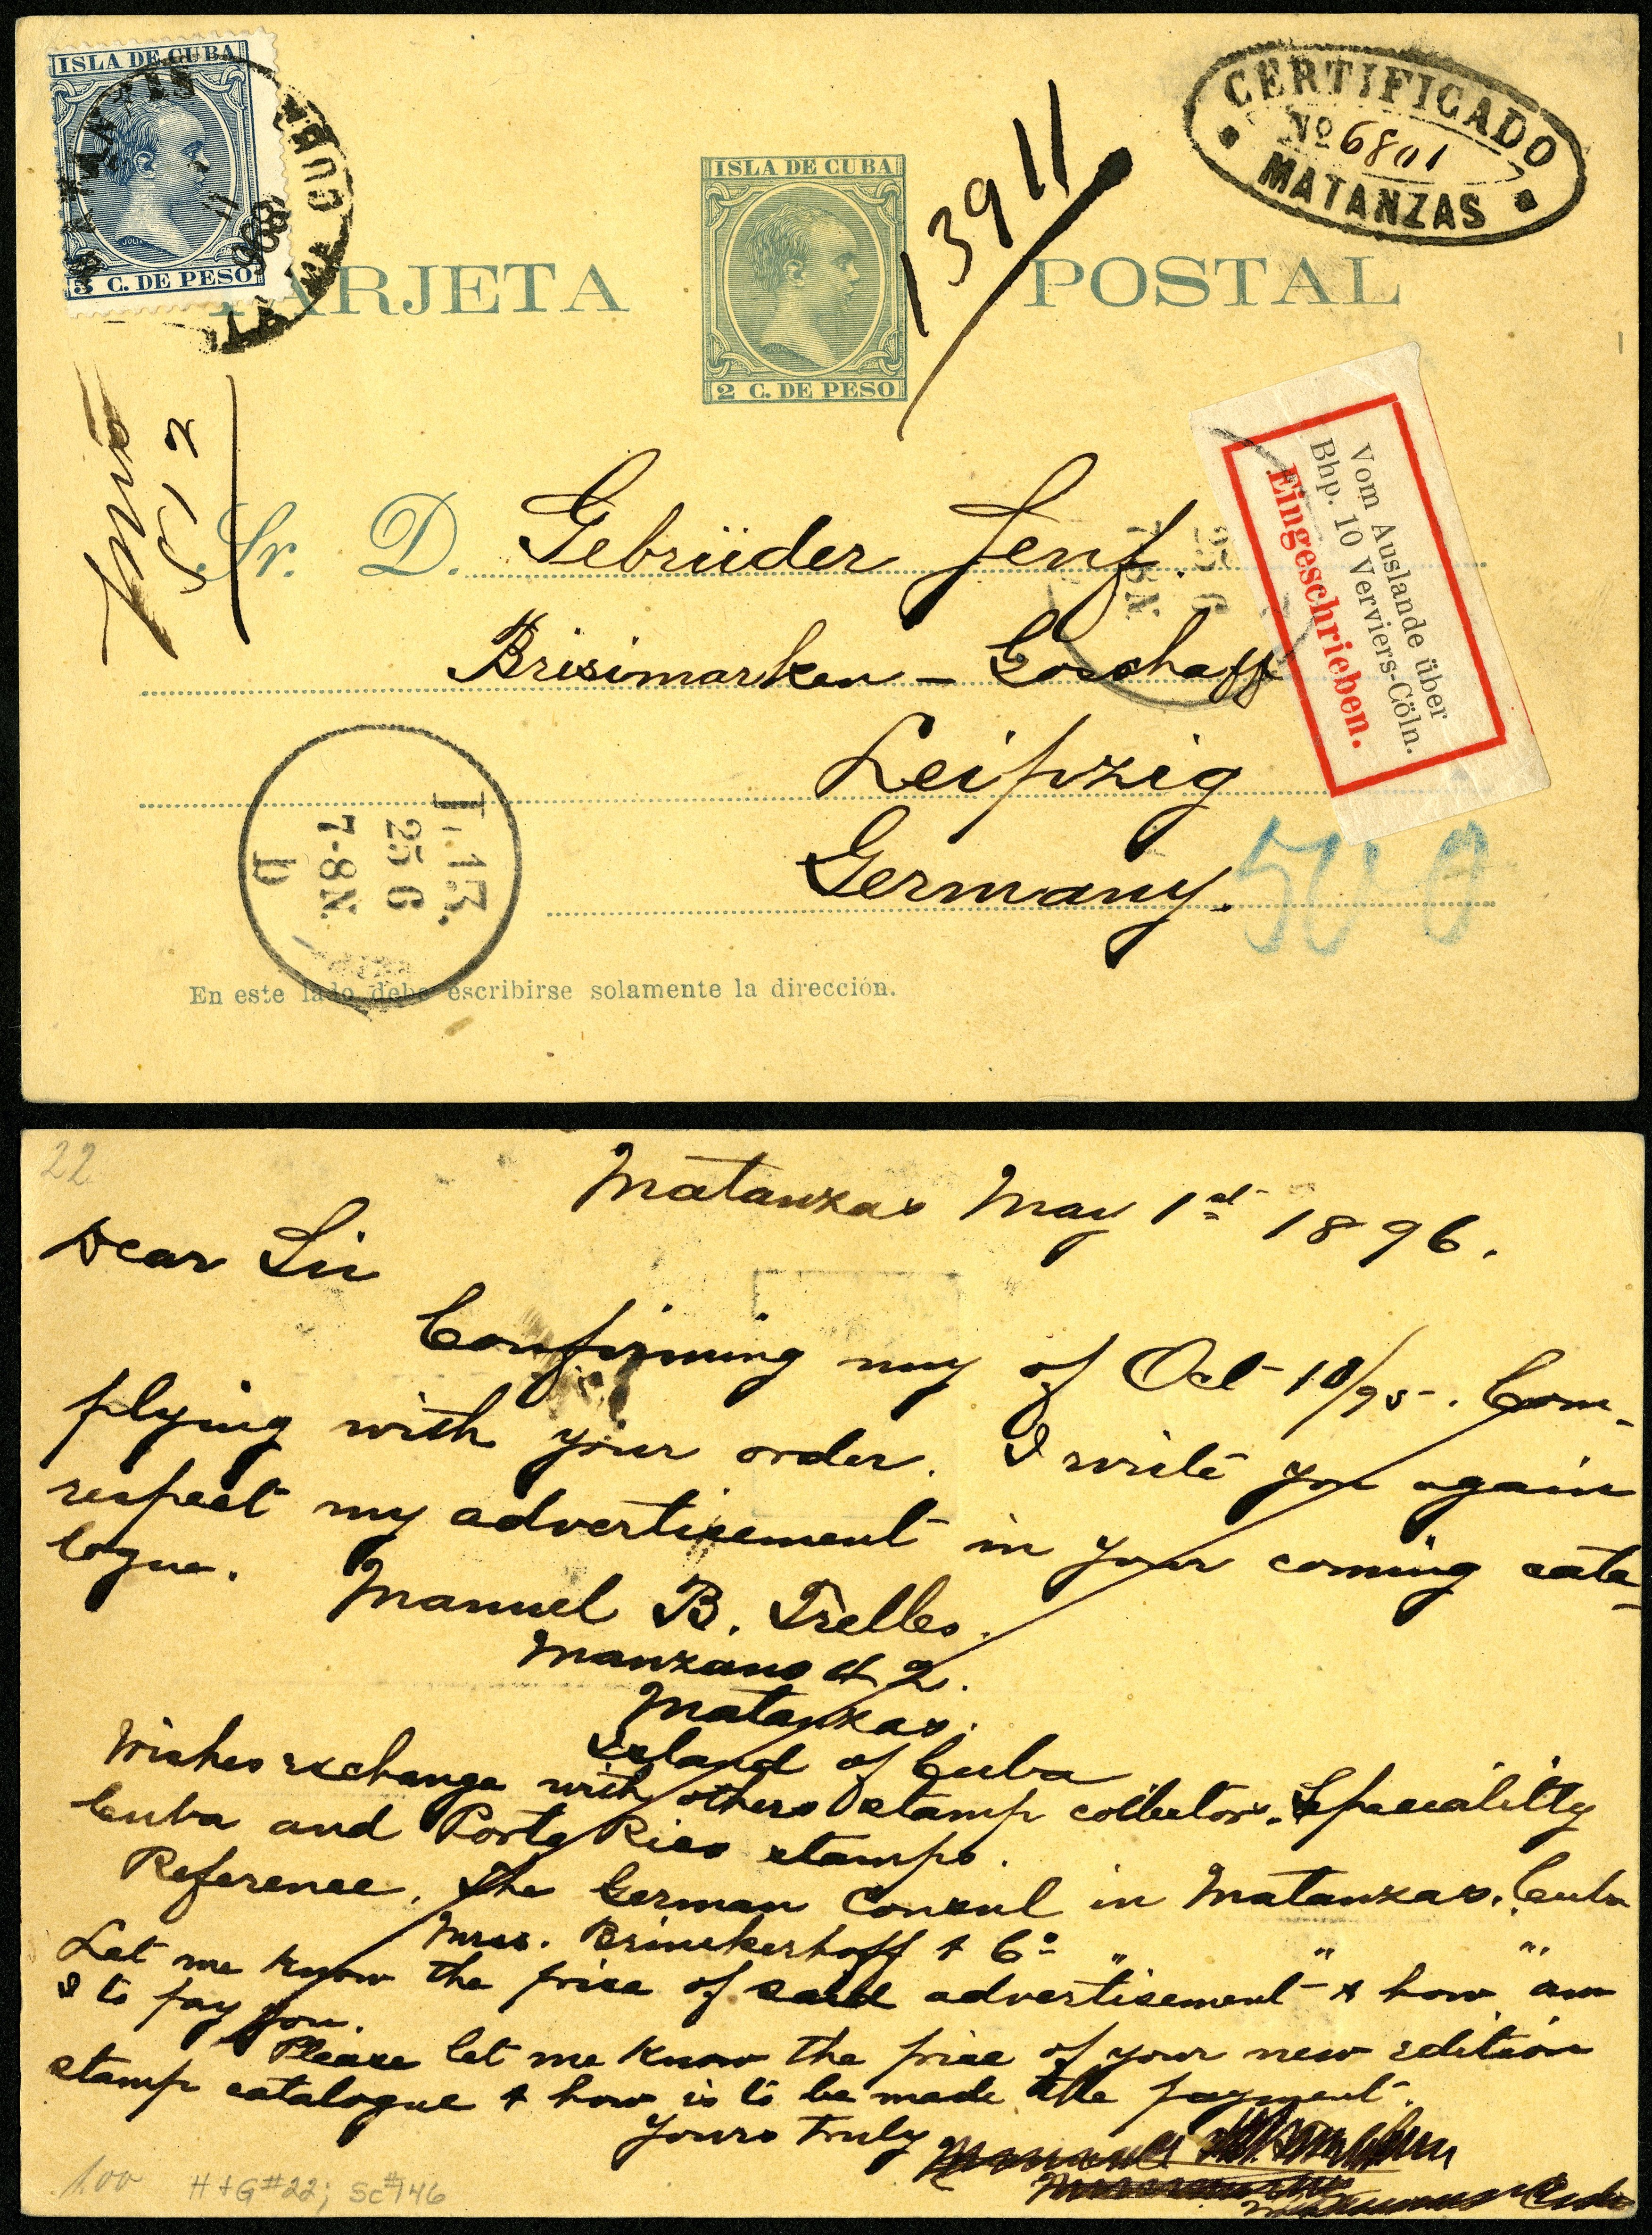 ISLA DE CUBA
5 C. DE PESO
MATANZAS
CUBA
96
ISLA DE CUBA
2 C. DE PESO
TARJETA POSTAL
13911
CERTIFICADO
Nº 6801
MATANZAS
Vom Auslande über
Bhp. 10 Verviers-Cöln.
Eingeschrieben.
512
Sr. D. Gebrüder Senf.
Brisimarken - Goschaff
Leipzig
Germany.
500
25 6
7-8N.
En este lado debe escribirse solamente la dirección.
22
Matanzas May 1st 1896.
Dear Sir
Confirming my of Oct 18/95. Com-
plying with your order. I write you again
respect my advertisement in your coming cata-
logue.
Manuel B. Trelles.
Manzano 42.
Matanzas.
Island of Cuba
Wishes exchange with others stamp collectors. Speciality
Cuba and Porto Rico stamps.
Reference. The German Consul in Matanzas. Cuba
Mrss. Brinckerhoff & Co " " "
Let me know the price of said advertisement & how am
I to pay you.
Please let me know the price of your new edition
stamp catalogue & how is to be made the payment.
Yours truly
1.00
H+G#22; Sc#146